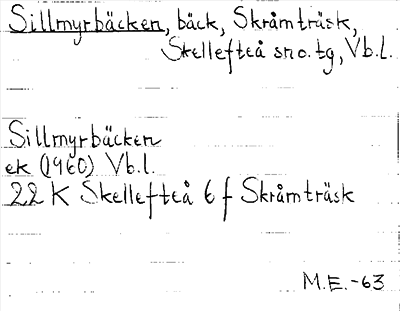 Sillmyrbäcken, bäck, Skråmträsk,
Skellefteå sno.tg, Vb.l.
Sillmyrbäcken
ek (1960) Vb.l.
22 K Skellefteå 6 f Skråmträsk
M.E.-63